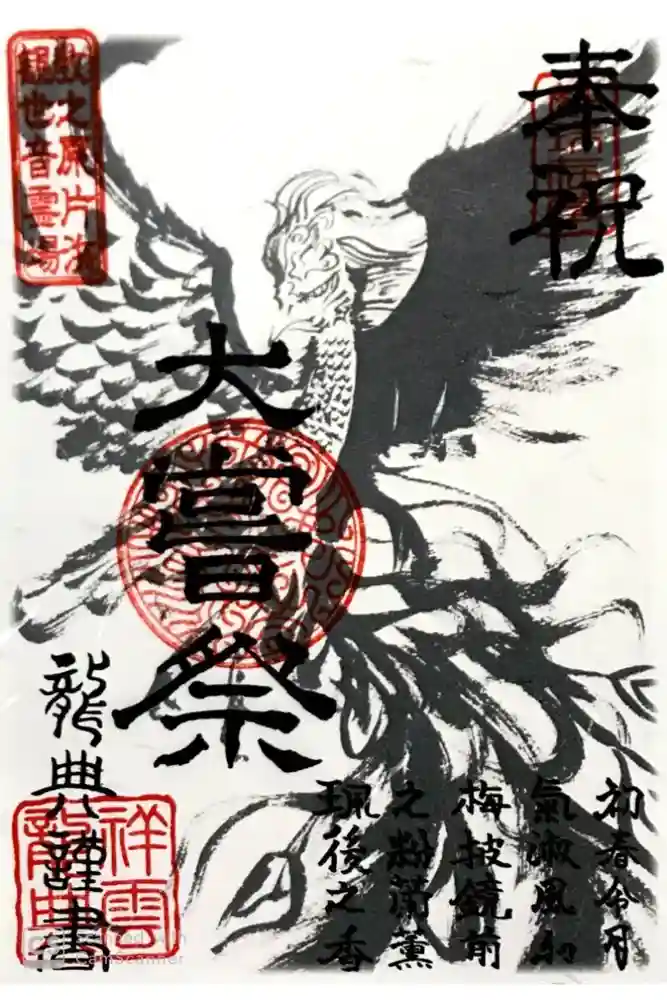 奉祝
大嘗祭
初春令月
氣淑風和
梅披鏡前
之粉蘭薫
珮後之香
龍典謹書
祥雲
龍典
世音霊場
Scanned with
CamScanner